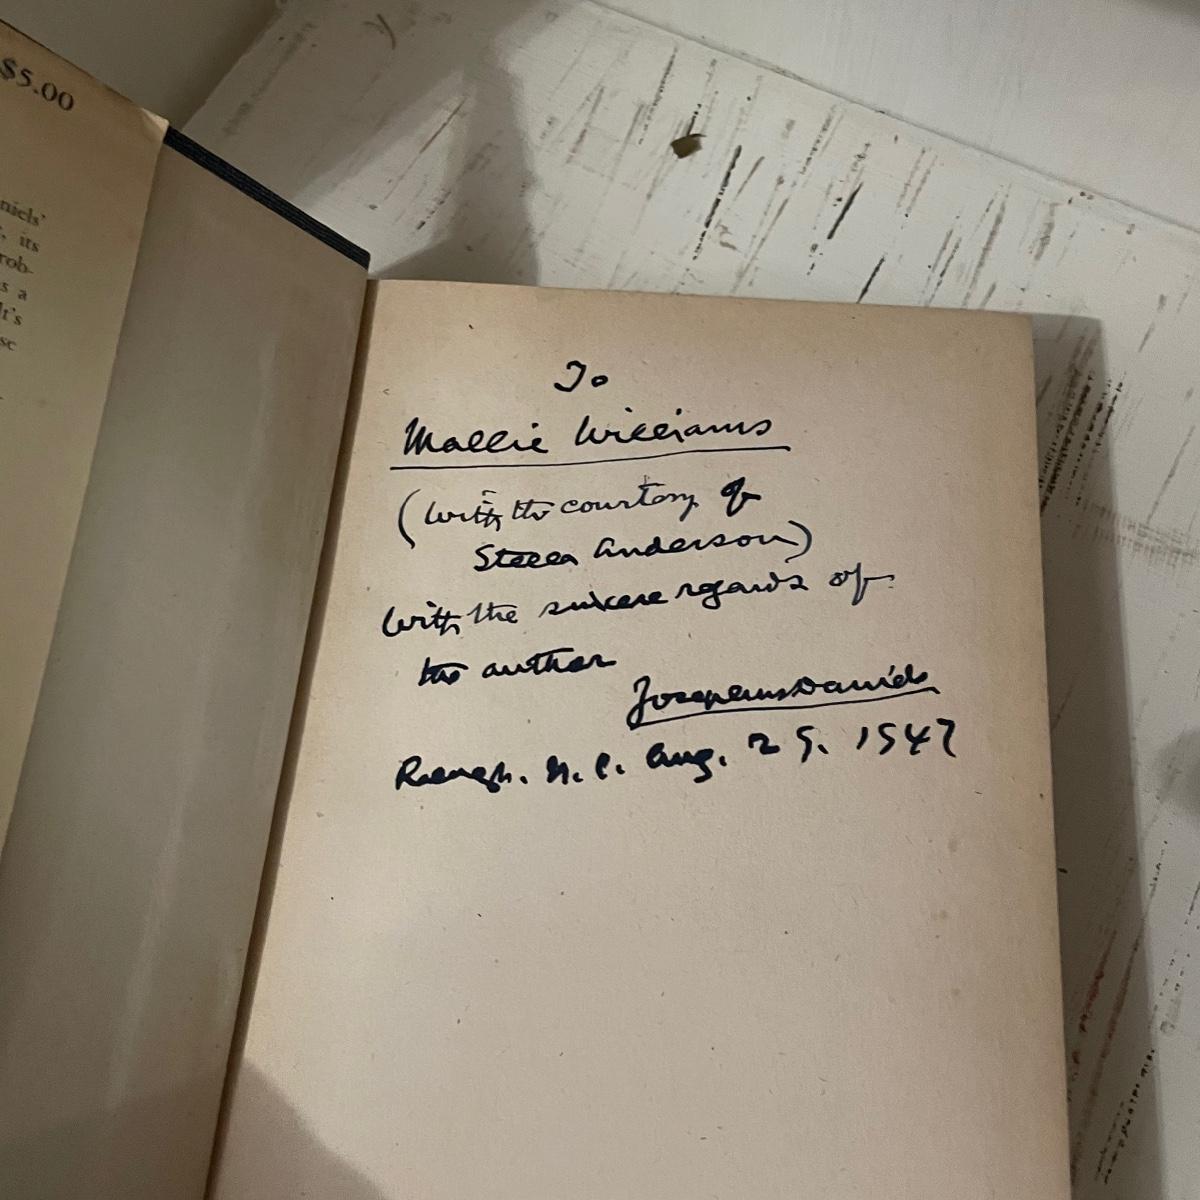 $5.00
niels'
, its
rob-
s a
lt's
se
To
Mallie Williams
(With the courtesy of
Stella Anderson)
With the sincere regards of
the author
Josephus Daniels
Raleigh. N. C. Aug. 29. 1947